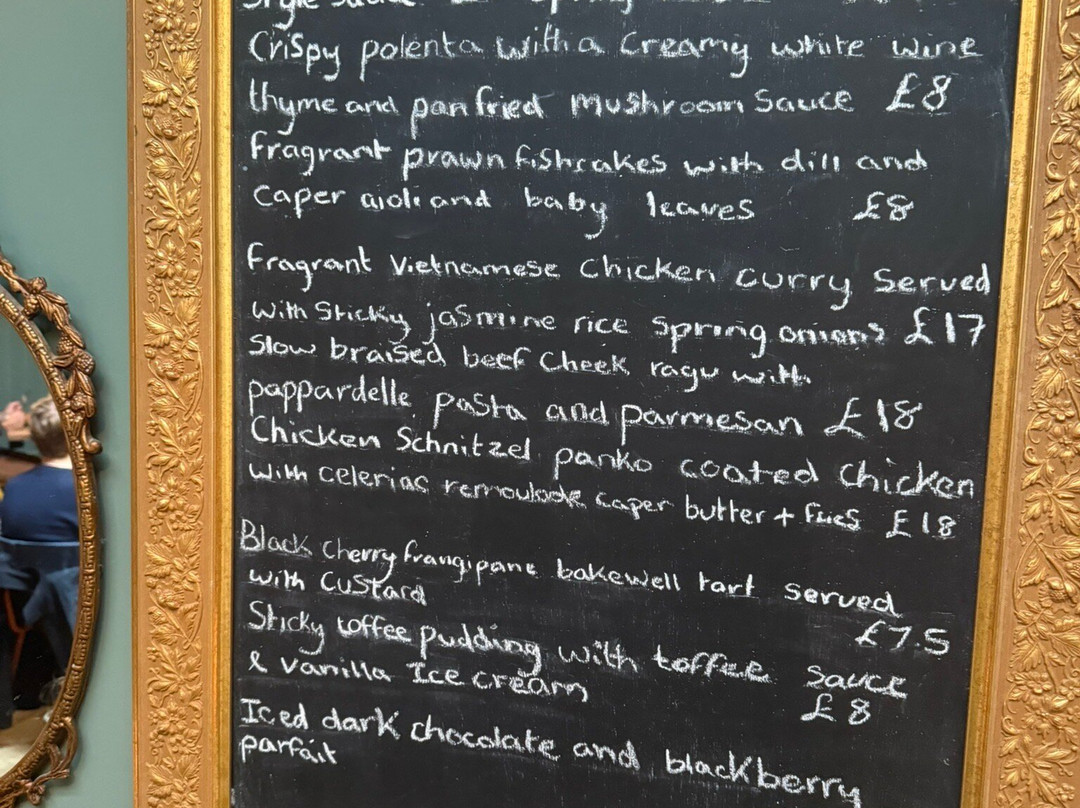 Style Sauce
Crispy polenta with a Creamy white wine
thyme and pan fried Mushroom Sauce £8
Fragrant prawn fishcakes with dill and
Caper aioli and baby leaves £8
Fragrant Vietnamese Chicken Curry Served
with Sticky jasmine rice Spring onions £17
Slow braised beef Cheek ragu with
pappardelle pasta and parmesan £18
Chicken Schnitzel panko coated Chicken
with celeriac remoulade caper butter + fries £18
Black Cherry frangipane bakewell tart served
with Custard
£7.5
Sticky toffee pudding with toffee Sauce
& Vanilla Ice cream £8
Iced dark chocolate and blackberry
parfait